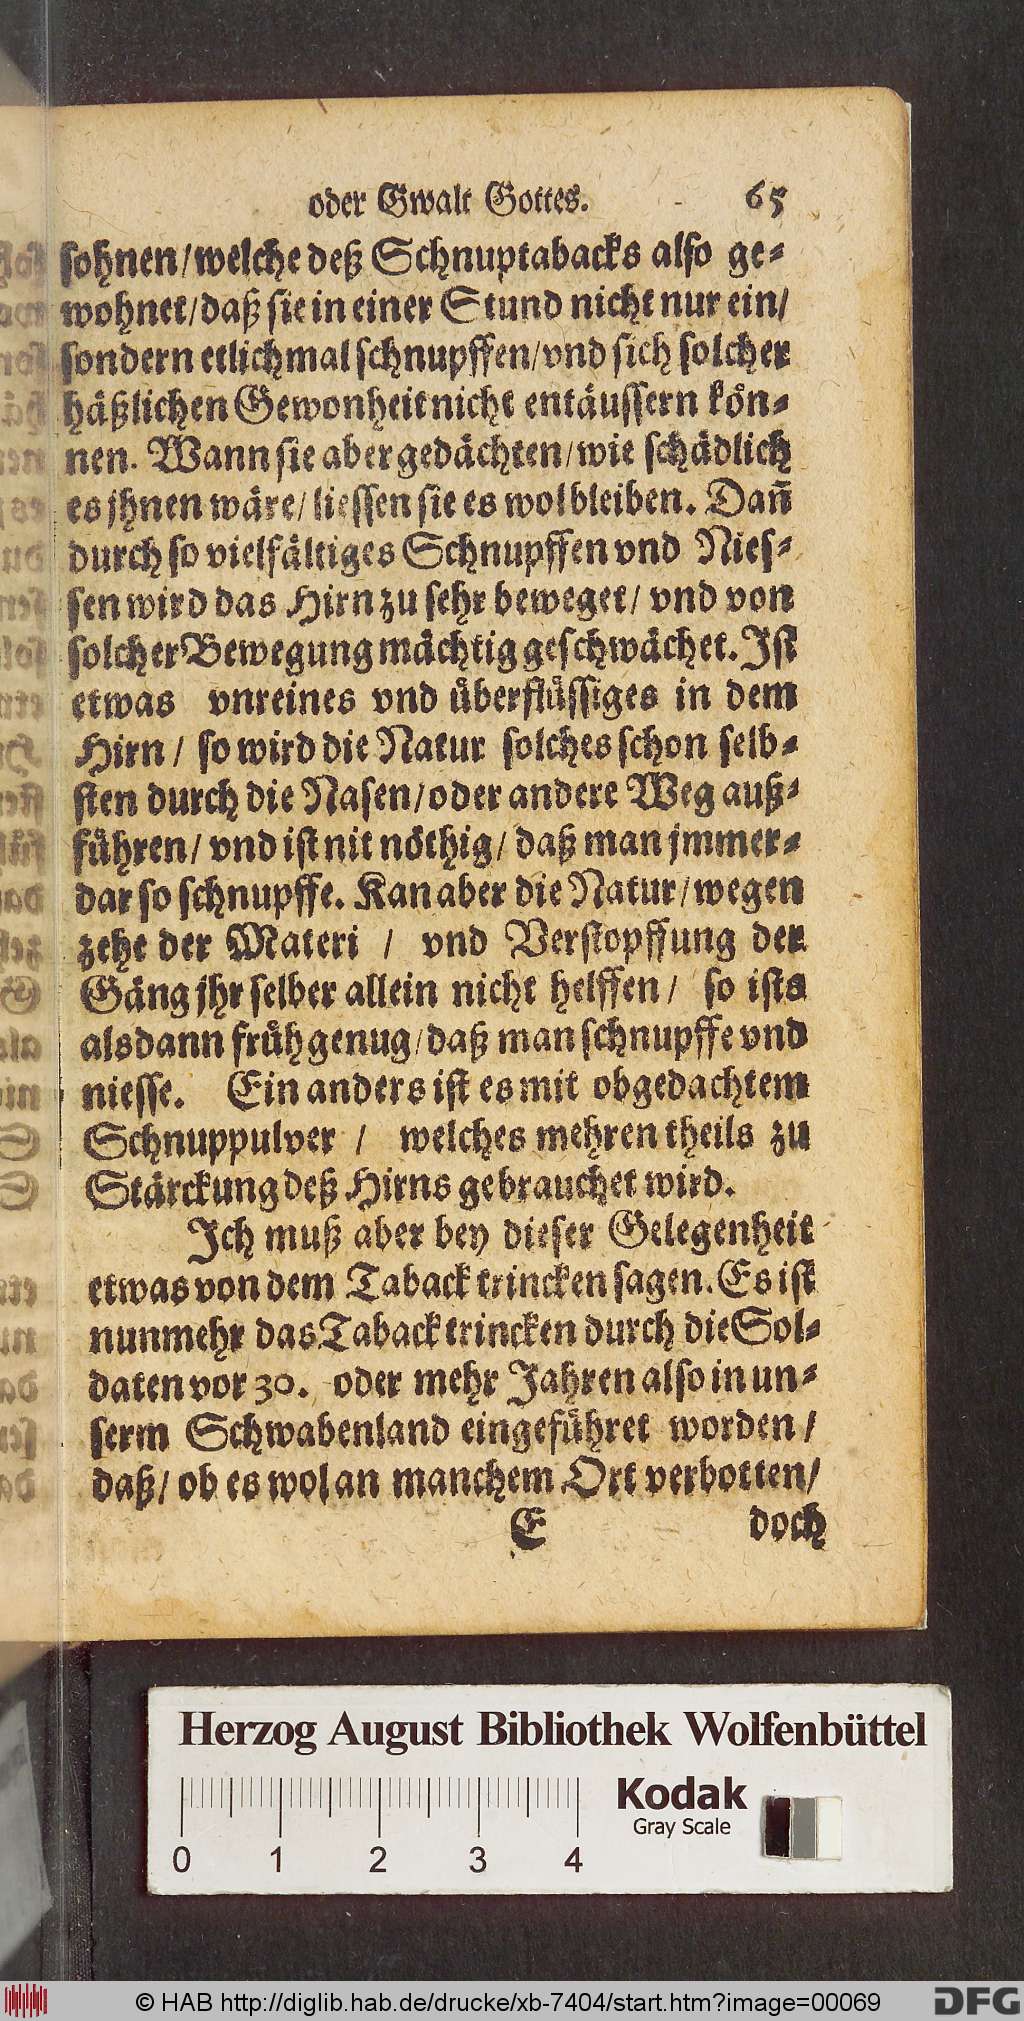 oder Gwalt Gottes. 65
sohnen/welche deß Schnuptabacks also ge-
wohnet/daß sie in einer Stund nicht nur ein/
sondern etlichmal schnupffen/vnd sich solcher
häßlichen Gewonheit nicht entäussern kön-
nen. Wann sie aber gedächten/wie schädlich
es jhnen wäre/liessen sie es wol bleiben. Dañ
durch so vielfältiges Schnupffen vnd Nies-
sen wird das Hirn zu sehr beweget/ vnd von
solcher Bewegung mächtig geschwächet. Ist
etwas vnreines vnd überflüssiges in dem
Hirn / so wird die Natur solches schon selb-
sten durch die Nasen/oder andere Weg auß-
führen/ vnd ist nit nöthig/ daß man jmmer-
dar so schnupffe. Kan aber die Natur/wegen
zehe der Materi / vnd Verstopffung der
Gäng jhr selber allein nicht helffen/ so ists
alsdann früh genug/daß man schnupffe vnd
niesse. Ein anders ist es mit obgedachtem
Schnuppulver / welches mehrentheils zu
Stärckung deß Hirns gebrauchet wird.
Ich muß aber bey dieser Gelegenheit
etwas von dem Taback trincken sagen. Es ist
nunmehr das Taback trincken durch die Sol-
daten vor 30. oder mehr Jahren also in un-
serm Schwabenland eingeführet worden /
daß/ ob es wol an manchem Ort verbotten/
E doch
Herzog August Bibliothek Wolfenbüttel
Kodak
Gray Scale
0 1 2 3 4
© HAB http://diglib.hab.de/drucke/xb-7404/start.htm?image=00069
DFG